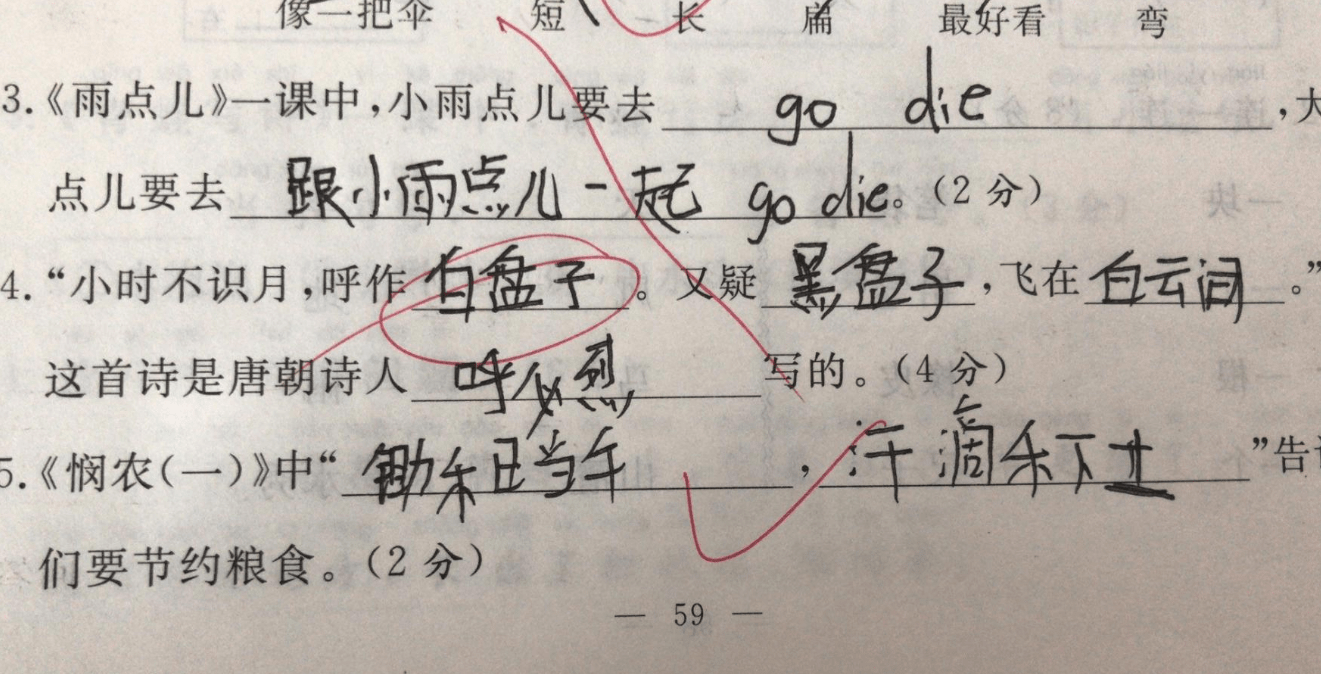 像一把伞 短 长 扁 最好看 弯
3.《雨点儿》一课中,小雨点儿要去 go die ,大
点儿要去 跟小雨点儿一起 go die。(2分)
4.“小时不识月,呼作 白盘子 。又疑 黑盘子 ,飞在 白云间 。”
这首诗是唐朝诗人 呼必烈 写的。(4分)
5.《悯农(一)》中“ 锄禾日当午 , 汗滴禾下土 ”告
们要节约粮食。(2分)
— 59 —